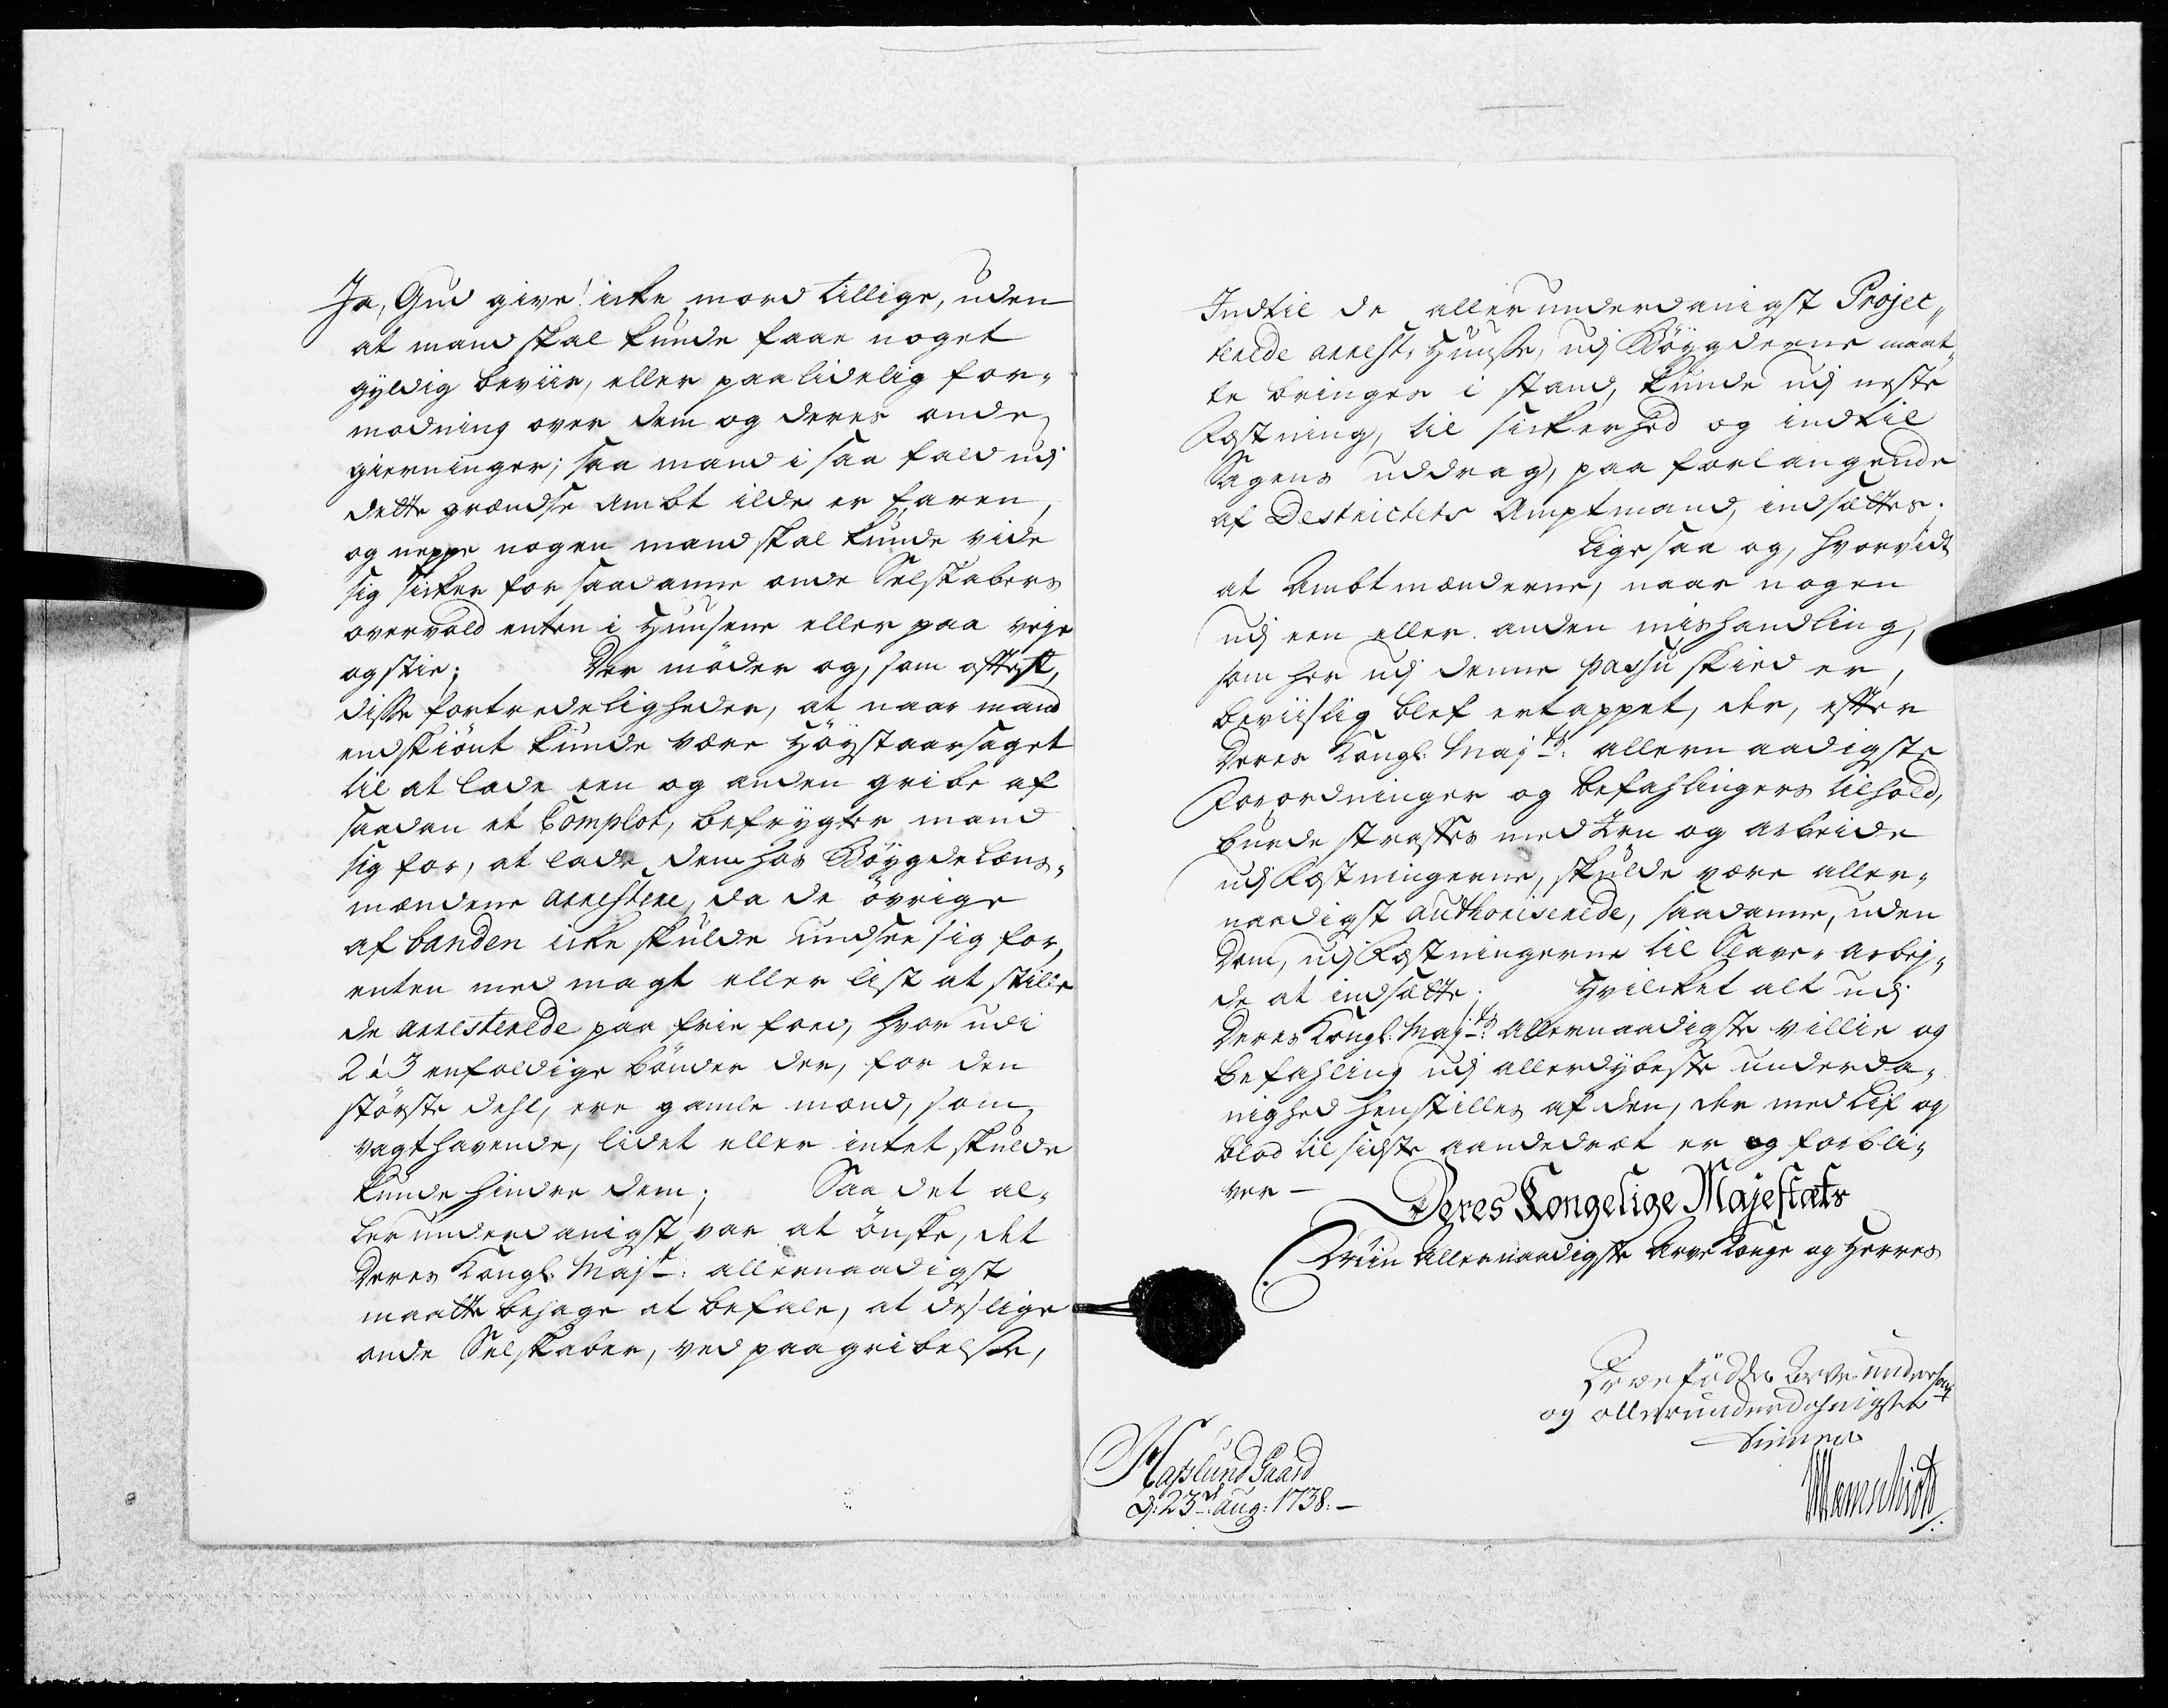 Ja, Gud give! icke mord tillige, uden
at mand skal kunde faae noget
gyldig beviis, eller paalidelig for-
modning over dem og deres onde
gierninger; saa mand i saa fald udj
dette grændse Ambt ilde er faren,
og neppe nogen mand skal kunde vide
sig sicker for saadanne onde Selskabers
overvold enten i Huusene eller paa veje
og stie; Der möder og, som oftest,
disse fortredeligheder, at naar mand
endskiönt kunde være Höystaarsaget
til at lade een og anden gribe af
saadan et Complot, befrygter mand
sig for, at lade dem hos Böygdelens-
mændene arrestere, da de övrige
af banden icke skulde undsee sig for,
enten med magt eller list at stille
de arresterede paa frie foed, hvor udi
2 à 3 enfoldige bönder der, for den
störste dehl, ere gamle mænd, som
vagthavende, lidet eller intet skulde
kunde hindre dem; Saa det al-
lerunderdanigst var at önske, det
Deres Kongl: Majt: allernaadigst
maatte behage at befale, at deslige
onde Selskaber, ved paagribelse,
Indtil de allerunderdanigst Projec-
terede arrest-Huuse, udj Böygderne maat-
te bringes i stand, kunde udj neste
Fæstning, til sickerhed og indtil
Sagens uddrag, paa forlangende
af Destrictets Amptmand, indsættes.
Ligesaa og, hvorvidt
at Ambtmænderne, naar nogen
udj een eller anden mishandling,
som her udj denne passu skied er,
beviislig blef ertappet, der, efter
Deres Kongl: Majts: allernaadigste
Forordninger og befahlingers tilhold,
burde straffes med Jern og arbeide
udj Fæstningerne, skulde være aller-
naadigst authoriserede, saadanne, uden
Dom, udj Fæstningerne til Slave-arbej-
de at indsætte; Hvilcket alt udj
Deres Kongl: Majts: allernaadigste villie og
befahling udj allerdybeste underda-
nighed henstilles af den, der med Lif og
blod til sidste aandedræt er og forbli-
ver —
Deres Kongelige Majestæts
Min Allernaadigste Arve Konge og Herres
og allerunderdanigste
tienner
Hafslund Gaard
d: 23de Aug: 1738. —